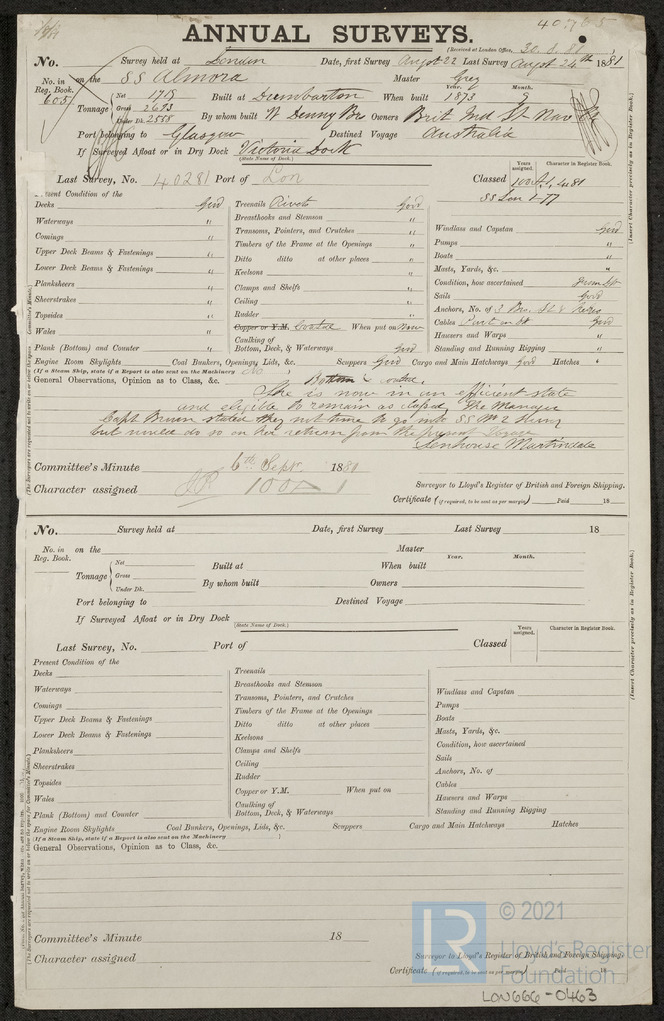 ANNUAL SURVEYS.
(Received at London Office, 30.8.81)
No. Survey held at London Date, first Survey Augst 22 Last Survey Augst 24th 1881
No. in Reg. Book. on the SS Almora Master Grey
605
Tonnage Net 1719 Gross 2693 Under Dk. 2558 Built at Dumbarton When built Year. 1873 Month. 9
By whom built W Denny Bro Owners Brit Ind St Nav Co
Port belonging to Glasgow Destined Voyage Australia
If Surveyed Afloat or in Dry Dock Victoria Dock
(State Name of Dock.)
Last Survey, No. 40281 Port of Lon Classed
Years assigned. Character in Register Book.
100A1
SS Lon 1-77
(Insert Character precisely as in Register Book.)
Present Condition of the
Decks Good
Waterways "
Comings "
Upper Deck Beams & Fastenings "
Lower Deck Beams & Fastenings "
Planksheers "
Sheerstrakes "
Topsides "
Wales "
Plank (Bottom) and Counter "
Treenails Rivets Good
Breasthooks and Stemson "
Transoms, Pointers, and Crutches "
Timbers of the Frame at the Openings "
Ditto ditto at other places "
Keelsons "
Clamps and Shelfs "
Ceiling "
Rudder "
Copper or Y.M. Coated When put on Now
Caulking of Bottom, Deck, & Waterways Good
Windlass and Capstan Good
Pumps "
Boats "
Masts, Yards, &c. "
Condition, how ascertained from
Sails Good
Anchors, No. of 3 Bro.
Cables Good
Hawsers and Warps "
Standing and Running Rigging "
Engine Room Skylights Coal Bunkers, Openings, Lids, &c. Scuppers Good Cargo and Main Hatchways Good Hatches "
(If a Steam Ship, state if a Report is also sent on the Machinery No)
General Observations, Opinion as to Class, &c. Bottom coated.
She is now in an efficient state
and eligible to remain as classed, The Manager
Capt Brown stated they not time to go into SS No 2
but would do so on her return from the present Voyage
Senhouse Martindale
Committee's Minute 6th Sept 1881
Character assigned 100A1
Surveyor to Lloyd's Register of British and Foreign Shipping.
Certificate (if required, to be sent as per margin) Paid 18
No. Survey held at Date, first Survey Last Survey 18
No. in Reg. Book. on the Master
Tonnage Net Gross Under Dk. Built at When built Year. Month.
By whom built Owners
Port belonging to Destined Voyage
If Surveyed Afloat or in Dry Dock
(State Name of Dock.)
Last Survey, No. Port of Classed
Years assigned. Character in Register Book.
(Insert Character precisely as in Register Book.)
Present Condition of the
Decks
Waterways
Comings
Upper Deck Beams & Fastenings
Lower Deck Beams & Fastenings
Planksheers
Sheerstrakes
Topsides
Wales
Plank (Bottom) and Counter
Treenails
Breasthooks and Stemson
Transoms, Pointers, and Crutches
Timbers of the Frame at the Openings
Ditto ditto at other places
Keelsons
Clamps and Shelfs
Ceiling
Rudder
Copper or Y.M. When put on
Caulking of Bottom, Deck, & Waterways
Windlass and Capstan
Pumps
Boats
Masts, Yards, &c.
Condition, how ascertained
Sails
Anchors, No. of
Cables
Hawsers and Warps
Standing and Running Rigging
Engine Room Skylights Coal Bunkers, Openings, Lids, &c. Scuppers Cargo and Main Hatchways Hatches
(If a Steam Ship, state if a Report is also sent on the Machinery )
General Observations, Opinion as to Class, &c.
Committee's Minute 18
Character assigned
Surveyor to Lloyd's Register of British and Foreign Shipping.
Certificate (if required, to be sent as per margin) Paid 18
LR © 2021
Lloyd's Register
Foundation
LON666-0463